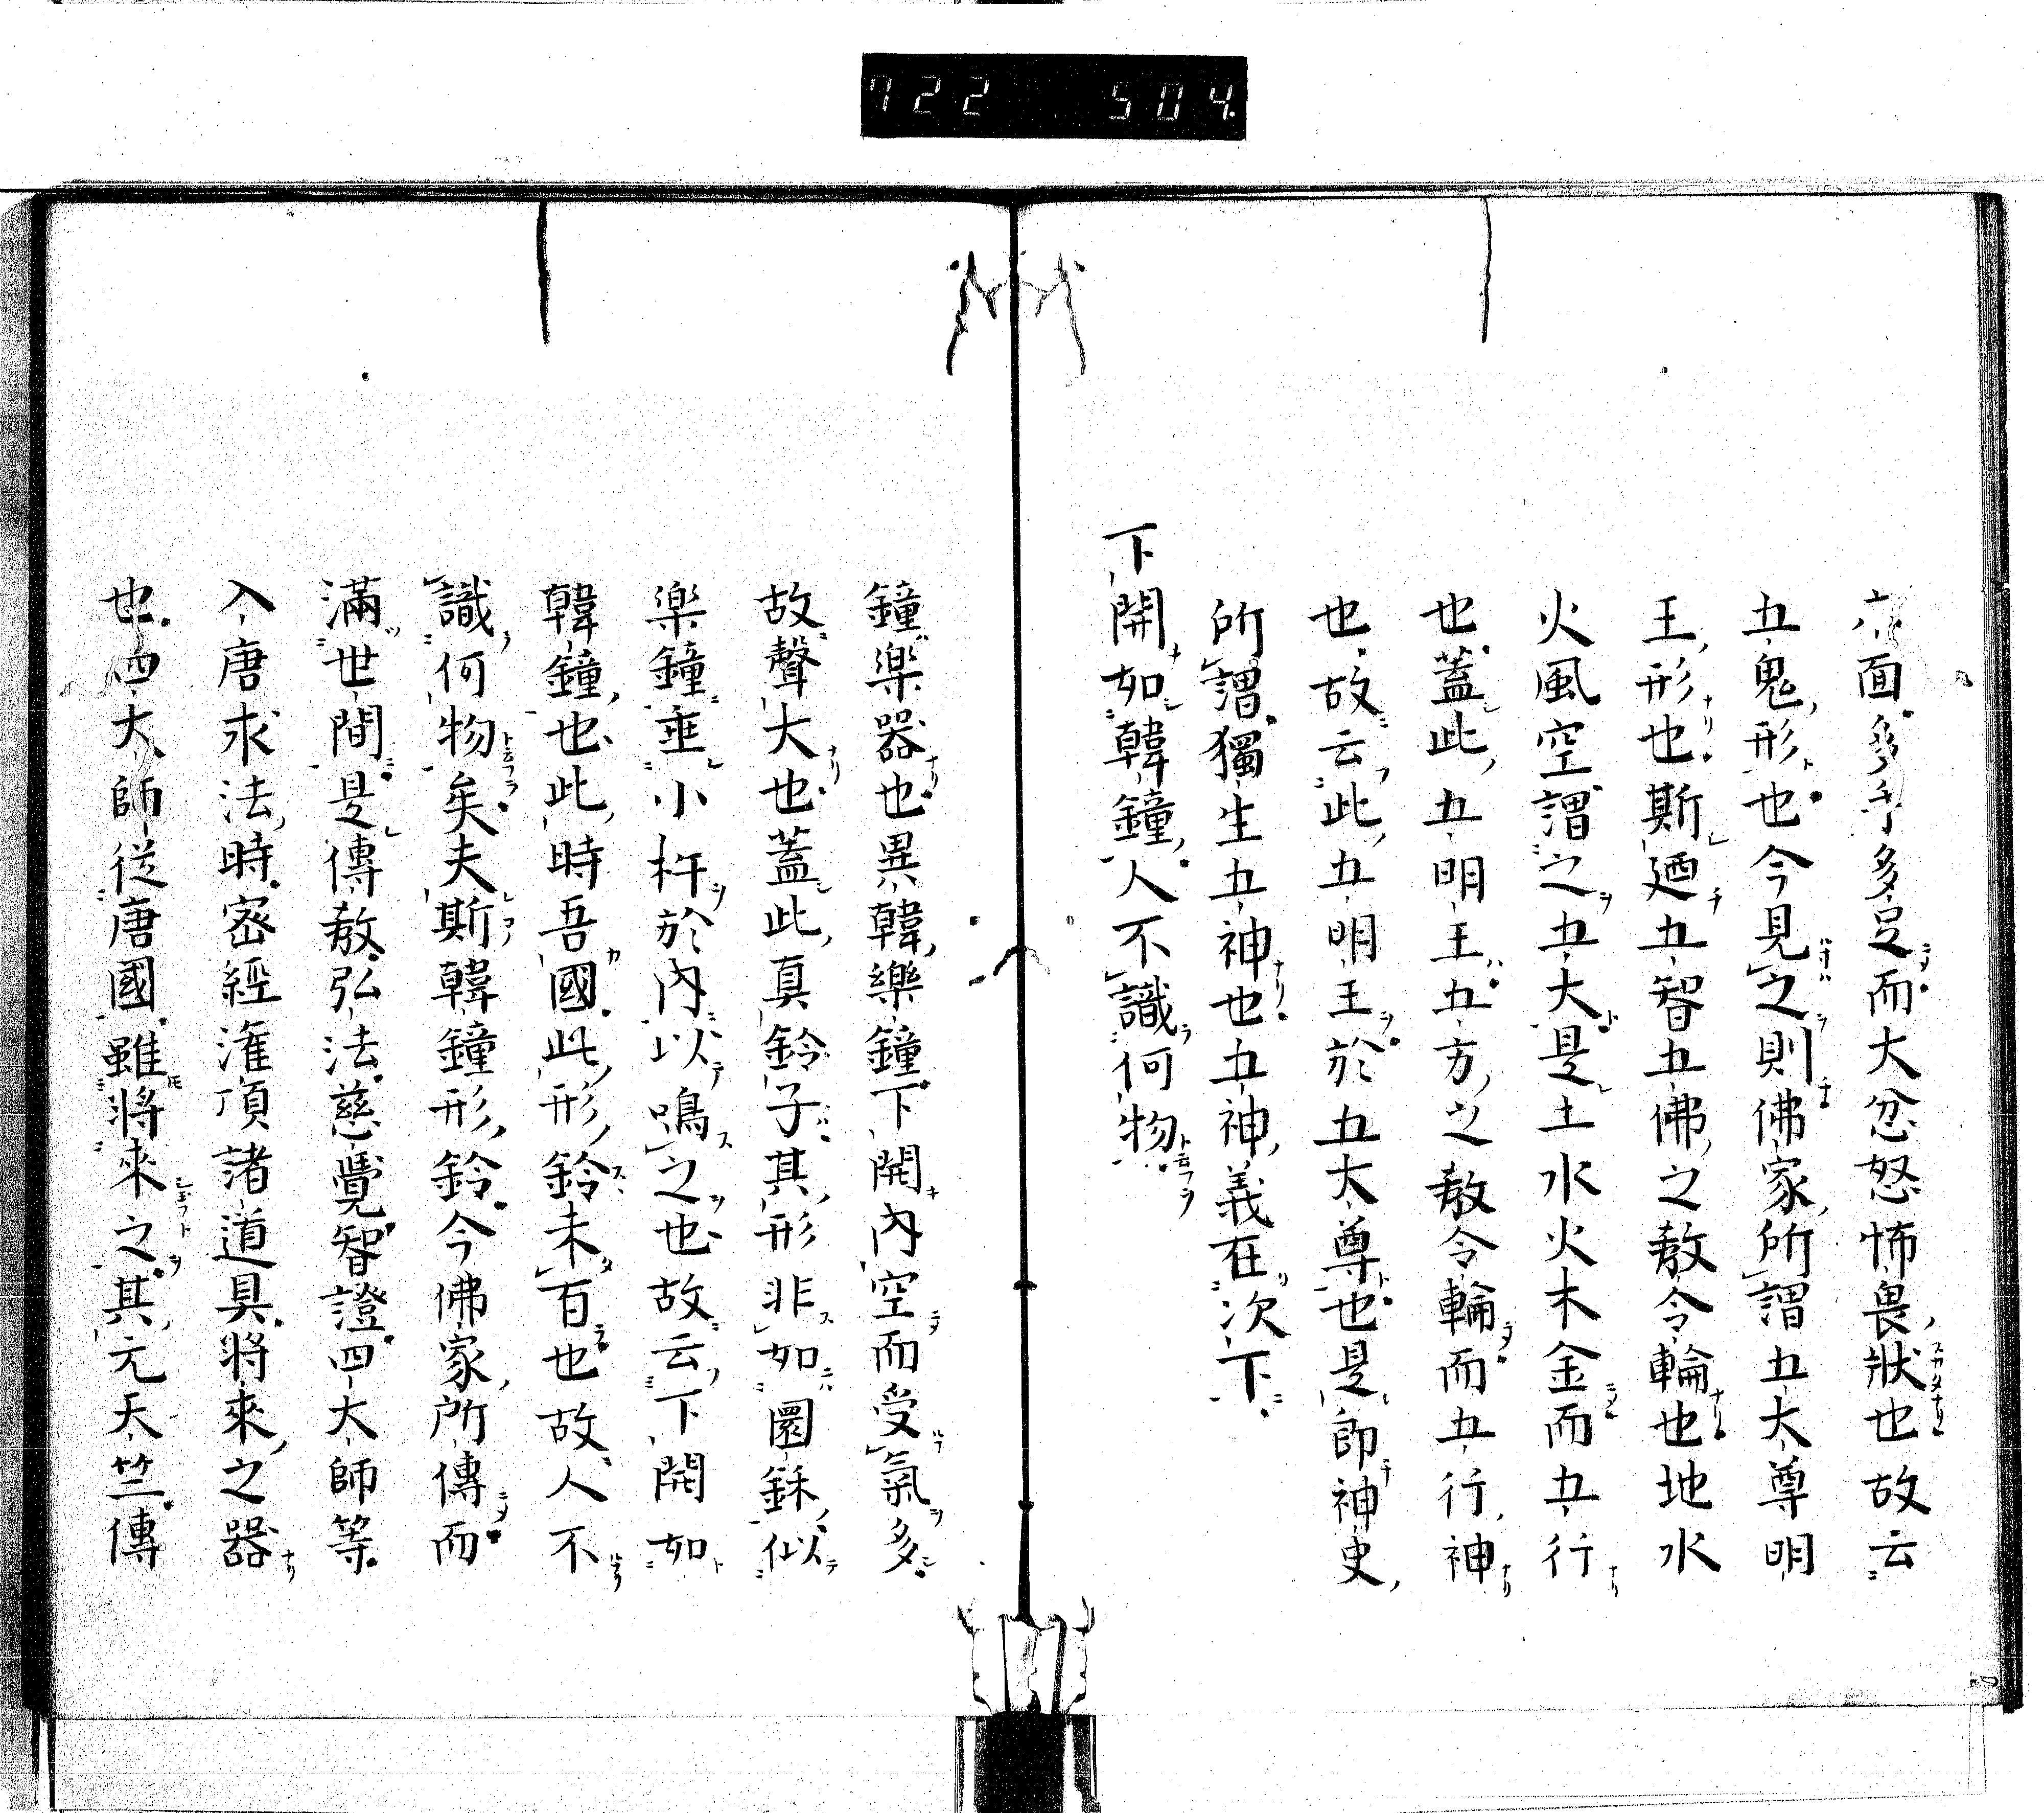 722 504
六面多手多足而大忿怒怖畏狀也故云
五鬼形也今見之則佛家所謂五大尊明
王形也斯廼五智五佛之教令輪也地水
火風空謂之五大是土水火木金而五行
也蓋此五明王五方之教令輪而五行神
也故云此五明王於五大尊也是即神史
所謂獨生五神也五神義在次下
下開如韓鐘人不識何物
鐘樂器也異韓樂鐘下開內空而受氣多
故聲大也蓋此真鈴子其形非如圜鉌似
楽鐘垂小杵於內以鳴之也故云下開如
韓鐘也此時吾國此形鈴未有也故人不
識何物矣夫斯韓鐘形鈴今佛家所傳而
滿世間是傳教弘法慈覺智證四大師等
入唐求法時密經潅頂諸道具將來之器
也四大師從唐國雖將來之其元天竺傳